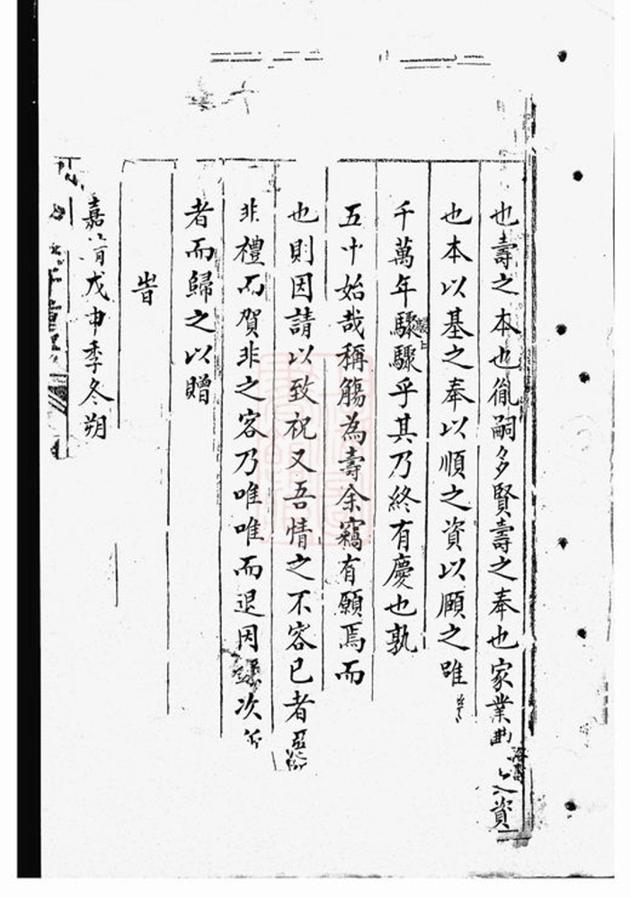 也壽之本也胤嗣多賢壽之奉也家業之資
也本以基之奉以順之資以頤之唯
千萬年驟驟乎其乃終有慶也孰
五十始哉稱觴為壽余竊有願焉而
也則因請以致祝又吾情之不容已者
非禮而賀非之容乃唯唯而退因次
者而歸之以贈
旹
嘉靖戊申季冬朔